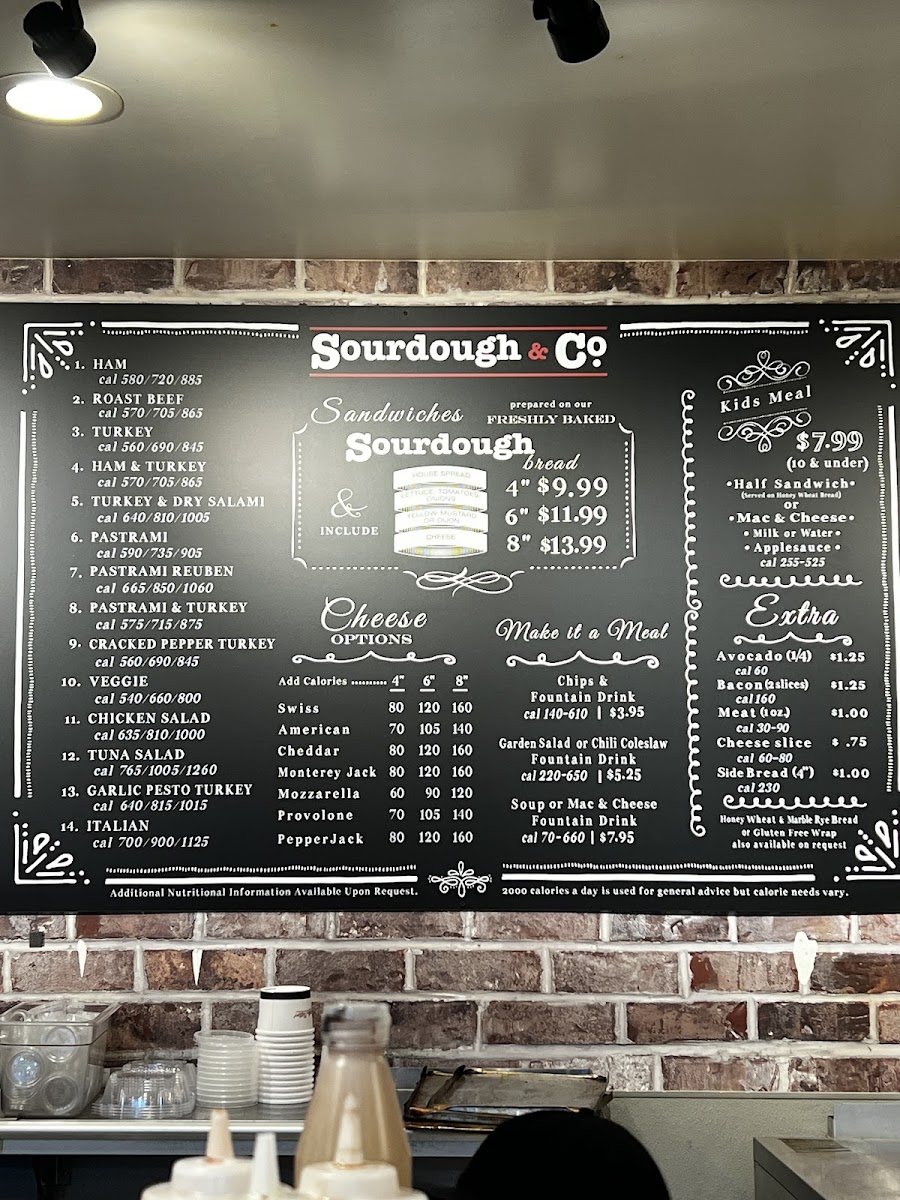 Sourdough & Co.
1. HAM
cal 580/720/885
2. ROAST BEEF
cal 570/705/865
3. TURKEY
cal 560/690/845
4. HAM & TURKEY
cal 570/705/865
5. TURKEY & DRY SALAMI
cal 640/810/1005
6. PASTRAMI
cal 590/735/905
7. PASTRAMI REUBEN
cal 665/850/1060
8. PASTRAMI & TURKEY
cal 575/715/875
9. CRACKED PEPPER TURKEY
cal 560/690/845
10. VEGGIE
cal 540/660/800
11. CHICKEN SALAD
cal 635/810/1000
12. TUNA SALAD
cal 765/1005/1260
13. GARLIC PESTO TURKEY
cal 640/815/1015
14. ITALIAN
cal 700/900/1125
Sandwiches
prepared on our
FRESHLY BAKED
Sourdough
bread
&
INCLUDE
HOUSE SPREAD
LETTUCE, TOMATOES,
ONIONS
YELLOW MUSTARD
OR DIJON
CHEESE
4" $9.99
6" $11.99
8" $13.99
Cheese
OPTIONS
Add Calories .......... 4" 6" 8"
Swiss 80 120 160
American 70 105 140
Cheddar 80 120 160
Monterey Jack 80 120 160
Mozzarella 60 90 120
Provolone 70 105 140
PepperJack 80 120 160
Make it a Meal
Chips &
Fountain Drink
cal 140-610 | $3.95
Garden Salad or Chili Coleslaw
Fountain Drink
cal 220-650 | $5.25
Soup or Mac & Cheese
Fountain Drink
cal 70-660 | $7.95
Kids Meal
$7.99
(10 & under)
•Half Sandwich•
(Served on Honey Wheat Bread)
or
•Mac & Cheese•
• Milk or Water•
• Applesauce •
cal 255-525
Extra
Avocado (1/4) $1.25
cal 60
Bacon (2 slices) $1.25
cal 160
Meat (1 oz.) $1.00
cal 30-90
Cheese slice $ .75
cal 60-80
Side Bread (4") $1.00
cal 230
Honey Wheat & Marble Rye Bread
or Gluten Free Wrap
also available on request
Additional Nutritional Information Available Upon Request.
2000 calories a day is used for general advice but calorie needs vary.